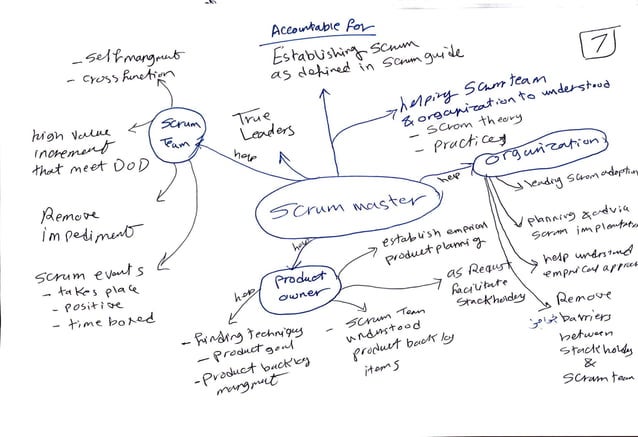 Accountable for
Establishing Scrum
as defined in Scrum guide
7
- Self mangmut
- crossfunction
True
Leaders
helping Scrum team
& organization to understood
- Scrum theory
- Practices
Scrum
Team
high Value
increment
that meet DoD
help
organization
help
Scrum master
leading Scrum adoption
Remove
impediment
planning & advis
Scrum implementation
establish emprical
product planning
help understand
emprical approach
help
Product
owner
Scrum events
- takes place
- positive
- time boxed
as Requst
Facilitate
Stackholdey
Remove
barriers
between
Stackholdey
&
Scrum team
help
- Finding Techniques
- product goal
- Product backlog
mangmut
- Scrum Team
understood
product backlog
items